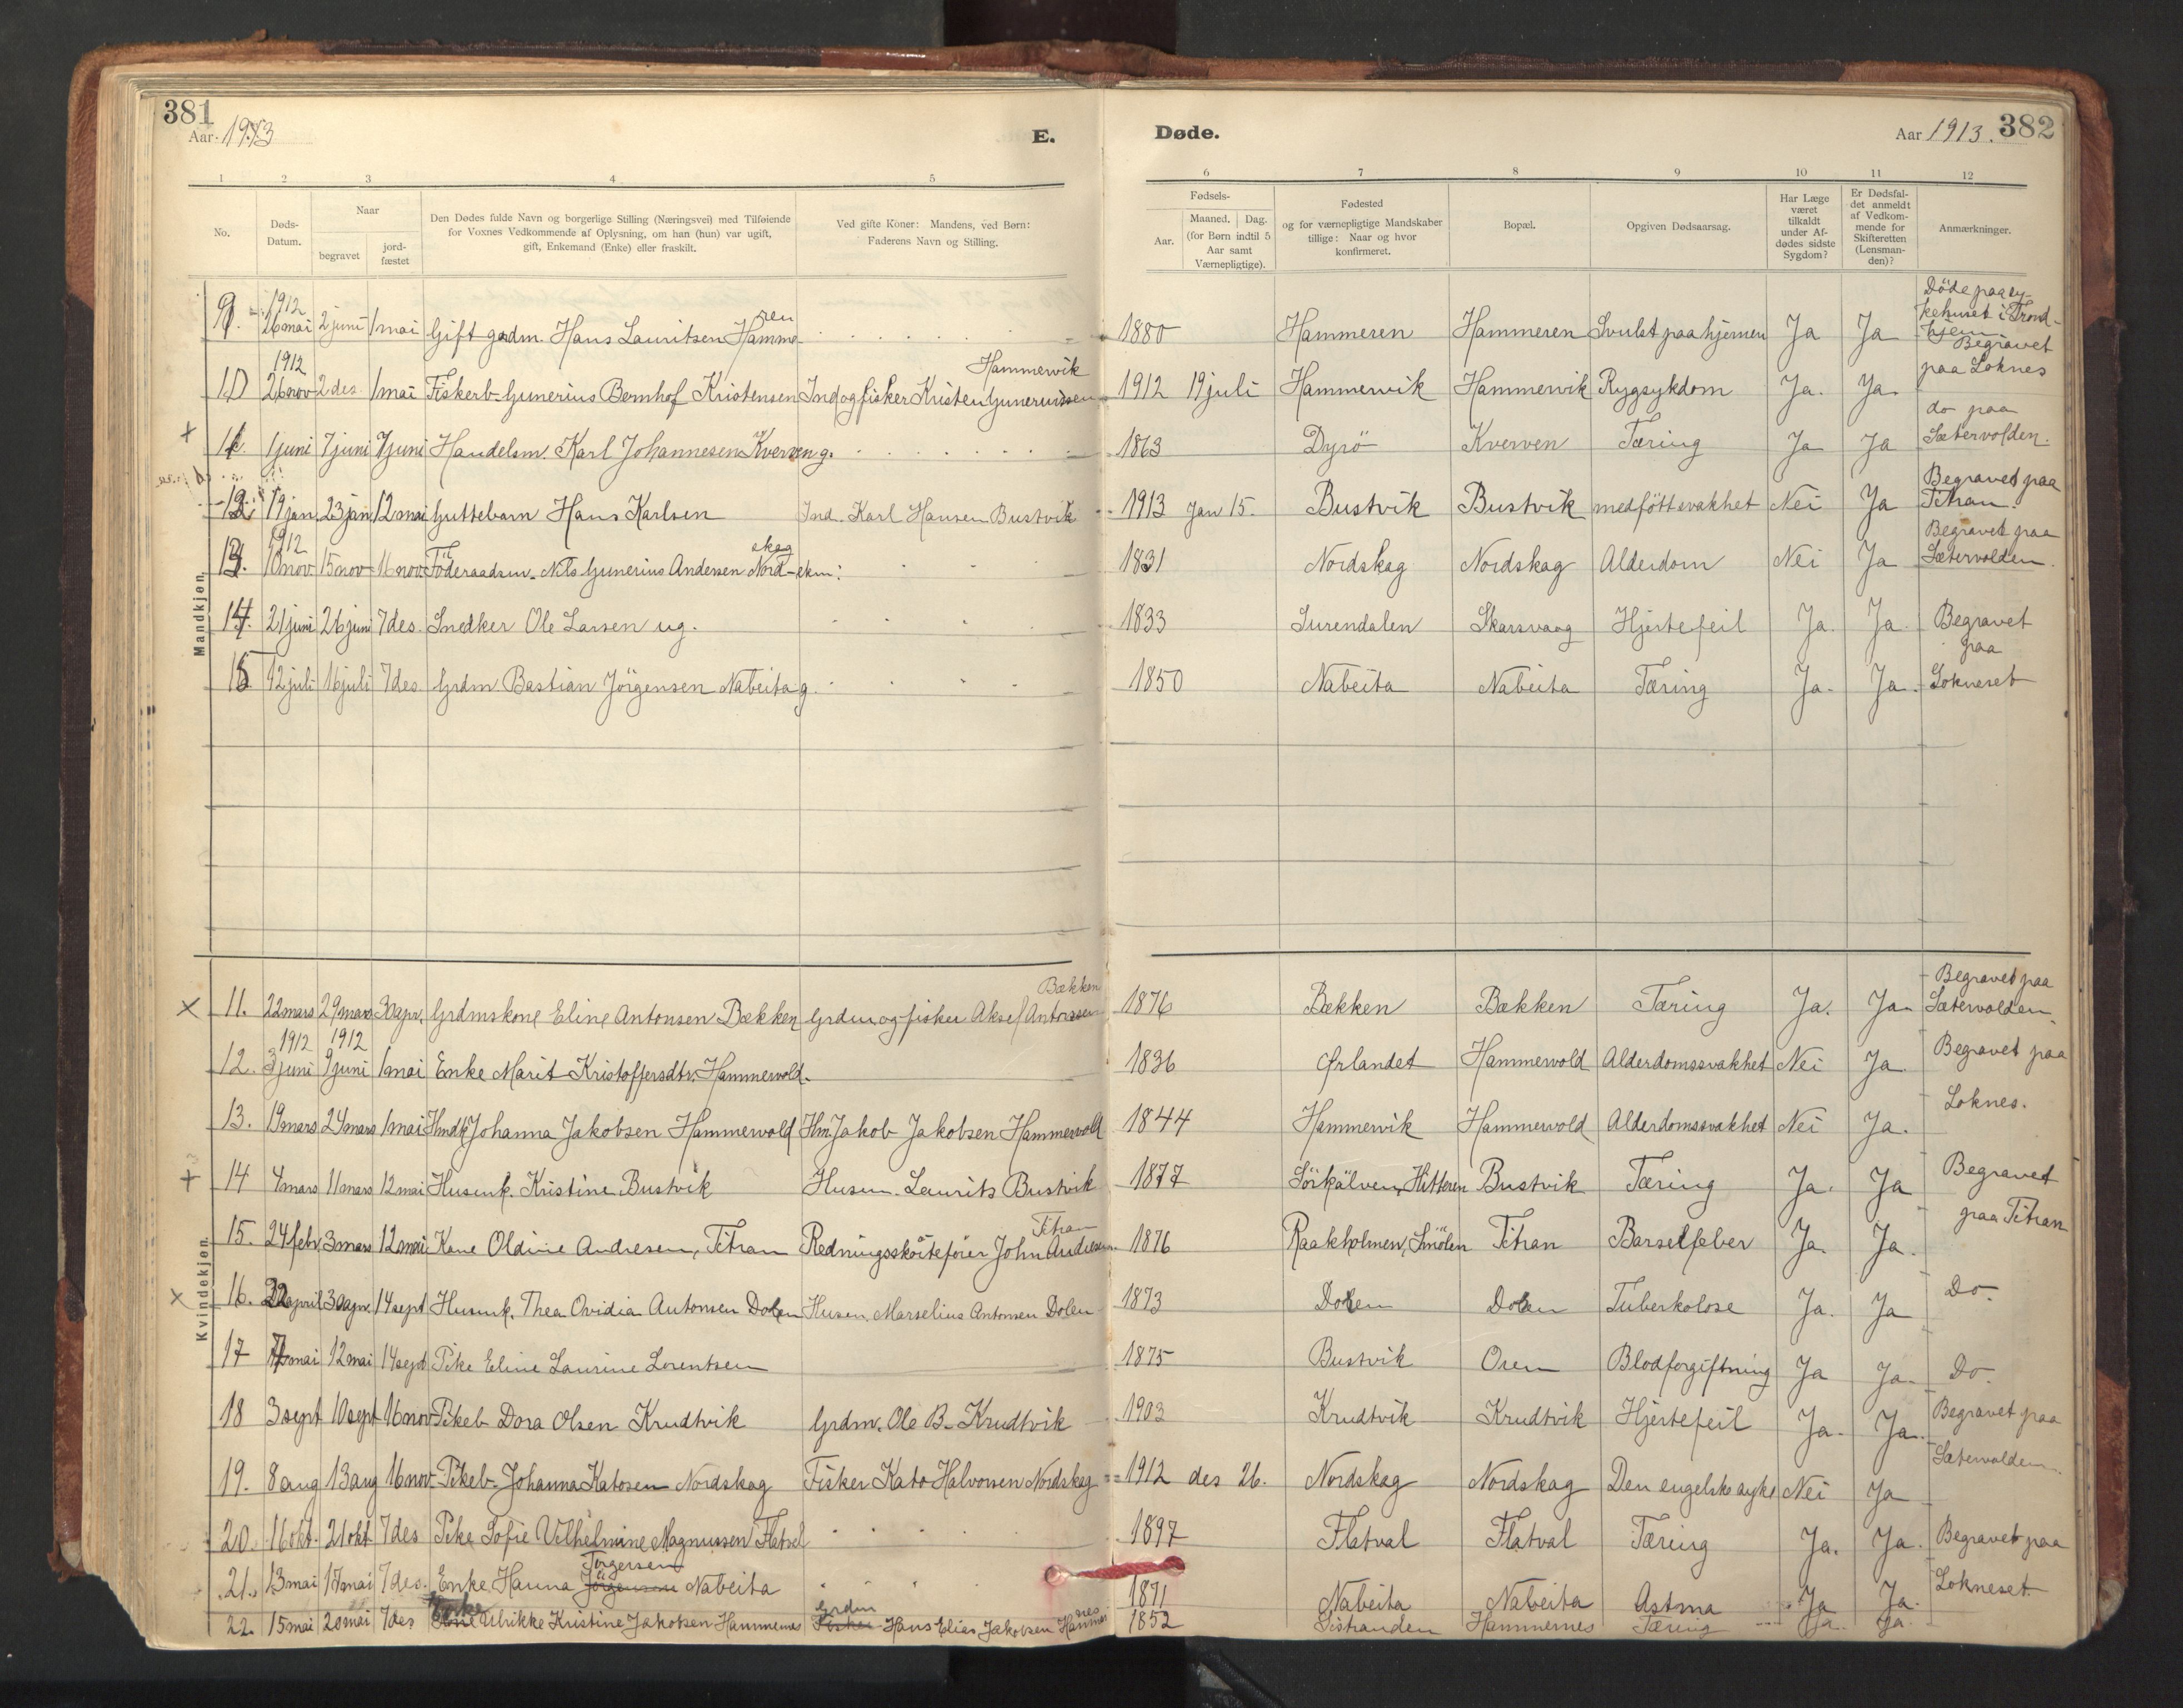 381
Aar 1913
E.
Døde.
Aar 1913.
382
1 2 3 4 5 6 7 8 9 10 11 12
No.
Døds-Datum.
Naar
begravet
jord-fæstet
Den Dødes fulde Navn og borgerlige Stilling (Næringsvei) med Tilføiende
for Voxnes Vedkommende af Oplysning, om han (hun) var ugift,
gift, Enkemand (Enke) eller fraskilt.
Ved gifte Koner: Mandens, ved Børn:
Faderens Navn og Stilling.
Fødsels-
Aar.
Maaned. Dag.
(for Børn indtil 5
Aar samt
Værnepligtige).
Fødested
og for værnepligtige Mandskaber
tillige: Naar og hvor
konfirmeret.
Bopæl.
Opgiven Dødsaarsag.
Har Læge
været
tilkaldt
under Af-
dødes sidste
Sygdom?
Er Dødsfal-
det anmeldt
af Vedkom-
mende for
Skifteretten
(Lensman-
den)?
Anmærkninger.
Mandkjøn.
9. 1912 26 mai 2 juni 1 mai Gift grdm. Hans Lauritsen Hammeren 1880 Hammeren Hammeren Svulst paa hjernen Ja Ja Döde paa sykehuset i Trondhjem. Begravet paa Loknes
10 1912 26 nov 2 des. 1 mai Fiskerb. Gunerius Bernhof Kristensen Ind og fisker Kristen Gunerinssen Hammervik 1912 19 juli Hammervik Hammervik Rygsykdom Ja. Ja.
11. 1 juni 7 juni 7 juni Handelsm. Karl Johannesen Kverven g. 1863 Dyrö Kverven Tæring Ja Ja do paa Sætervolden.
12. 19 jan. 23 jan 12 mai Guttebarn Hans Karlsen Ind. Karl Hansen Bustvik 1913 Jan 15. Bustvik Bustvik medföttsvakhet Nei Ja Begravet paa Titran.
13. 1912 10 nov 15 nov 16 nov Föderaadsm. Nils Gunerius Andersen Nordskag ekm. 1831 Nordskag Nordskag Alderdom Nei Ja Begravet paa Sætervolden.
14. 21 juni 26 juni 7 des. Snedker Ole Larsen ug. 1833 Surendalen Skarsvaag Hjertefeil Ja. Ja. Begravet paa
15 12 juli 16 juli 7 des Grdm. Bastian Jörgensen Nabeita g. 1850 Nabeita Nabeita Tæring Ja. Ja. Lokneset
Kvindekjøn.
11. 22 mars 29 mars 30 apr. Grdmskone Eline Antonsen Bækken Grdm og fisker Aksel Antonsen Bækken 1876 Bækken Bækken Tæring Ja. Ja. Begravet paa Sætervolden.
12. 1912 3 juni 1912 9 juni 1 mai Enke Marit Kristoffersdtr. Hammervold. 1836 Ørlandet Hammervold Alderdomssvakhet Nei Ja Begravet paa
13. 19 mars 24 mars 1 mai Johanna Jakobsen Hammervold Hm. Jakob Jakobsen Hammervold 1844 Hammervik Hammervold Alderdomssvakhet Nei Ja. Loknes.
14 4 mars 11 mars 12 mai Husmk. Kristine Bustvik Husm. Laurits Bustvik 1877 Sörkälven, Hitteren Bustvik Tæring Ja. Ja Begravet
15. 24 febr 3 mars 12 mai Kone Oldine Andresen, Titran Redningsskoiteförer John Andresen Titran 1876 Raakholmen, Smölen Titran Barselfeber Ja. Ja. paa Titran
16. 22 april 30 apr. 14 sept Husmk. Thea Ovidia Antonsen Dolen Husm. Marselius Antonsen Dolen 1873 Dolen Dolen Tuberkolose Ja. Ja Do.
17 7 mai 12 mai 14 sept Pike Eline Laurine Lorentsen 1875 Bustvik Oren Blodforgiftning Ja Ja. Do.
18 3 sept 10 sept 16 nov Pikeb Dora Olsen Krudtvik Grdm. Ole B. Krudtvik 1903 Krudtvik Krudtvik Hjertefeil Ja. Ja. Begravet paa
19. 8 aug 13 aug 16 nov Pikeb. Johanna Katosen Nordskag Fisker Kato Halvorsen Nordskag 1912 des 26. Nordskag Nordskag Den engelske syke Nei Ja Sætervolden.
20. 16 okt. 21 okt. 7 des Pike Sofie Vilhelmine Magnussen Flatval 1897 Flatval Flatval Tæring Ja. Ja. Begravet paa
21. 13 mai 17 mai 7 des. Enke Hanna Jörgensen Torgersen Nabeita 1871 Nabeita Nabeita Astma Ja Ja. Lokneset
22. 15 mai 20 mai 7 des Enke Ulrikke Kristine Jakobsen Hammernes Grdm Fisker Hans Elias Jakobsen Hammernes 1852 Sistranden Hammernes Tæring Ja. Ja.